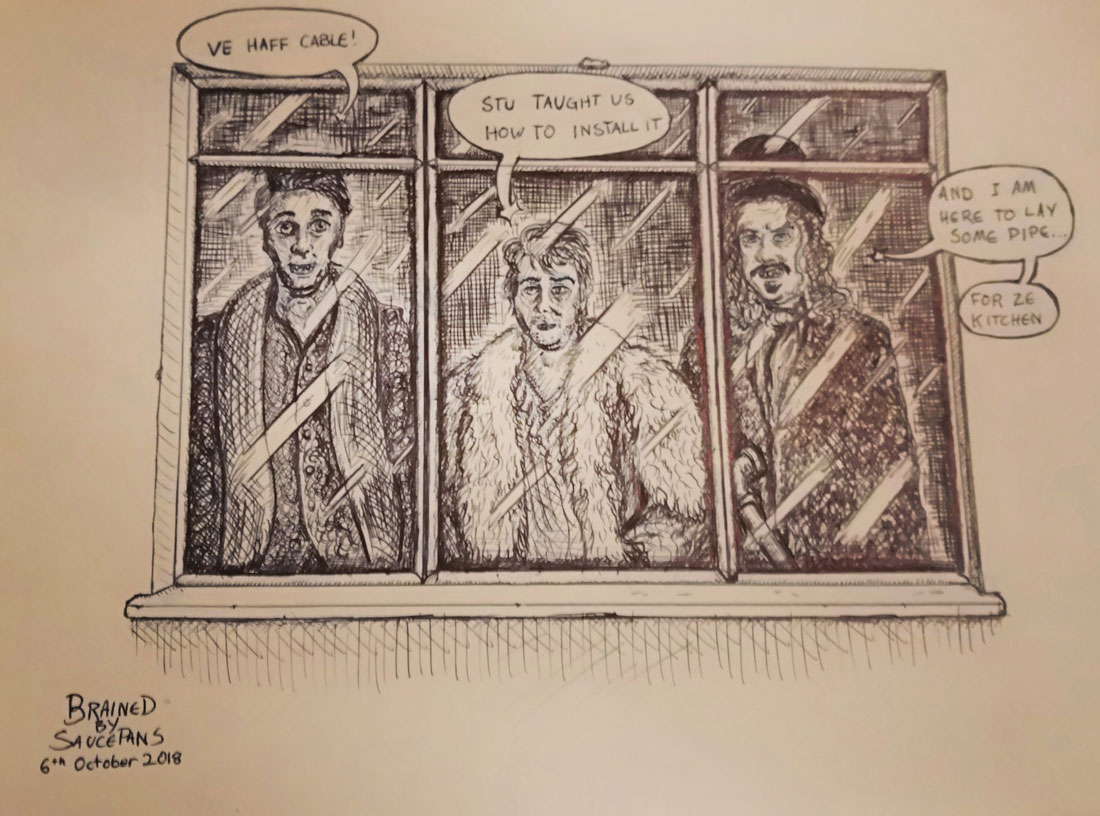 VE HAFF CABLE!
STU TAUGHT US
HOW TO INSTALL IT
AND I AM
HERE TO LAY
SOME PIPE...
FOR ZE
KITCHEN
BRAINED
BY
SAUCEPANS
6th October 2018